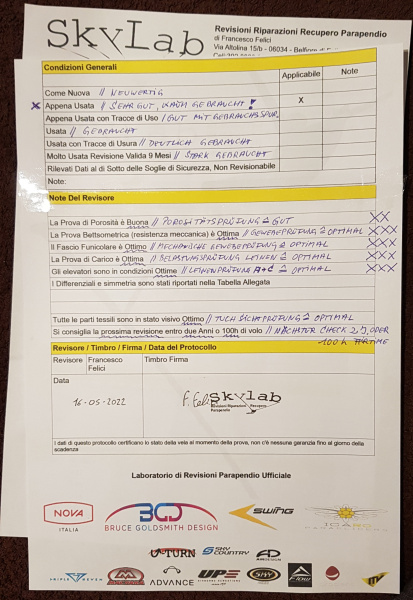 SkyLab
Revisioni Riparazioni Recupero Parapendio
di Francesco Felici
Via Altolina 15/b - 06034 -
Condizioni Generali
Applicabile
Note
Come Nuova // NEUWERTIG
X Appena Usata // SEHR GUT, KAUM GEBRAUCHT! X
Appena Usata con Tracce di Uso / GUT MIT GEBRAUCHSSPUR.
Usata // GEBRAUCHT
Usata con Tracce di Usura // DEUTLICH GEBRAUCHT
Molto Usata Revisione Valida 9 Mesi // STARK GEBRAUCHT
Rilevati Dati al di Sotto delle Soglie di Sicurezza, Non Revisionabile
Note:
Note Del Revisore
La Prova di Porosità è Buona // POROSITÄTSPRÜFUNG = GUT XX
La Prova Bettsometrica (resistenza meccanica) è Ottima // GEWEBEPRÜFUNG = OPTIMAL XXX
Il Fascio Funicolare è Ottimo // MECHANISCHE = OPTIMAL XXX
La Prova di Carico è Ottima // BELASTUNGSPRÜFUNG LEINEN = OPTIMAL XXX
Gli elevatori sono in condizioni Ottime // LEINENPRÜFUNG A+C = OPTIMAL XXX
I Differenziali e simmetria sono stati riportati nella Tabella Allegata
Tutte le parti tessili sono in stato visivo Ottimo // TUCH SICHTPRÜFUNG = OPTIMAL
Si consiglia la prossima revisione entro due Anni o 100h di volo // NÄCHSTER CHECK 2J, ODER
100h AIRTIME
Revisore / Timbro / Firma / Data del Protocollo
Revisore
Francesco
Felici
Timbro Firma
Data
16-05-2022
F. Felici
skylab
Revisioni Riparazioni Recupero
Parapendio
I dati di questo protocollo certificano lo stato della vela al momento della prova, non c'è nessuna garanzia fino al giorno della
scadenza
Laboratorio di Revisioni Parapendio Ufficiale
NOVA
ITALIA
BGD
BRUCE GOLDSMITH DESIGN
SWING
ICARO
U-TURN
SKY COUNTRY
AIRDESIGN
TRIPLE SEVEN
ADVANCE
UP
SKY
FLOW